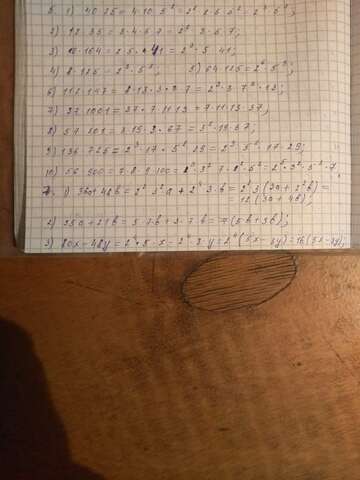 5. 1) 40·25 = 4·10·5² = 2²·2·5·5² = 2³·5³;
2) 12·35 = 3·4·5·7 = 2²·3·5·7;
3) ·164 = 2·5· 41 = 2³·5·41;
4) 8·125 = 2³·5³; 5) 64·125 = 2⁶·5³;
6) 112·147 = 2⁴·3·7³;
7) 37·1001 = 37·7·11·13 = 7·11·13·37;
8) 57·201 = 3·19·3·67 = 3²·19·67;
9) 136·725 = 2³·17·5²·29 = 2³·5²·17·29;
10) 56·900 = 7·8·9·100 = 2³·3²·7·2²·5² = 2⁵·3²·5²·7,
7. 1) 36a + 48b = 2²·3²a + 2⁴·3·b = 2²·3(3a + 2²b) =
= 12(3a + 4b);
2) 35a + 21b = 5·7·b + 3·7·b = 7(5b + 3b);
3) 80x − 48y = 2⁴·5·x − 2⁴·3·y = 2⁴(5x − 3y) = 16(5x − 3y);